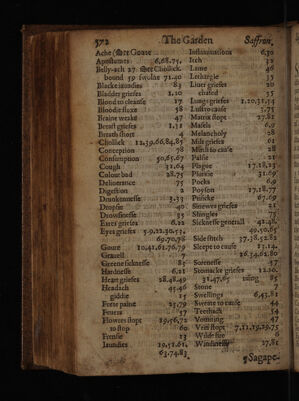 372 The Garden Saffron,
Ache (See Goute
Apostumes 6,68,75.
Belly-ach 27 See Chollick.
bound 59 swolne 71.40
Blacke iaundies 83
Bladder griefes 1.20
Blood to cleanse 17
Bloodie fluxe 58
Braine weake 47
Breast griefes 1,31
Breath short 4
Chollick 12,39,66,84,85
Conception 78
Consumption 50,65,67
Cough 31,64
Colour bad 28.75
Deliuerance 75
Digestion 2
Drunkennesse 3.33
Dropsie 40
Drowsinesse 35
Eares griefes 6.21
Eyes griefes 5.9,22,30.53,
69,70,78
Goute 10,41,61,76,79
Grauell 7
Greene sicknesse 85
Hardnesse 6,21
Heart griefes 28,48,49
Headach 45,46
giddie 15
Forte paine 25,79
Feuers 57
Flowers stopt 19,56,72
to stop 60
Frensie 13
Iaundies 19,52,61,
63.74.83
Inflammations 6.30
Itch 32
Lame 46
Lethargie 35
Liuer griefes 20
55
Lungs griefes 1,20,31,54
Matrix stopt 27,81
Measels 6,9
Melancholy 28
Milt griefes 61
Misth to cleanse 28
Palsie 21
Plague 17.18,23
Plurisie 31.69
Pocks 6,9
Poyson 17.18.77
Pissicke 67.69
Sinewes griefes 21
Shingles 75
Sicknesse generall 42,48,
49,50,65
Side stitch 37,38,52,82
Sleepe to cause 13.14.
26,34,61,80
Sorenesse 57
Stomacke griefes 12.20.
31,47,65 85
Stone 7
Swellings 6,43,81
Swette to cause 44
Teethach 54
Vomiting 47
Vrin stopt 7,12,19,29,75
Wildefire 6
Windinesse 27,81
¶Sagape-